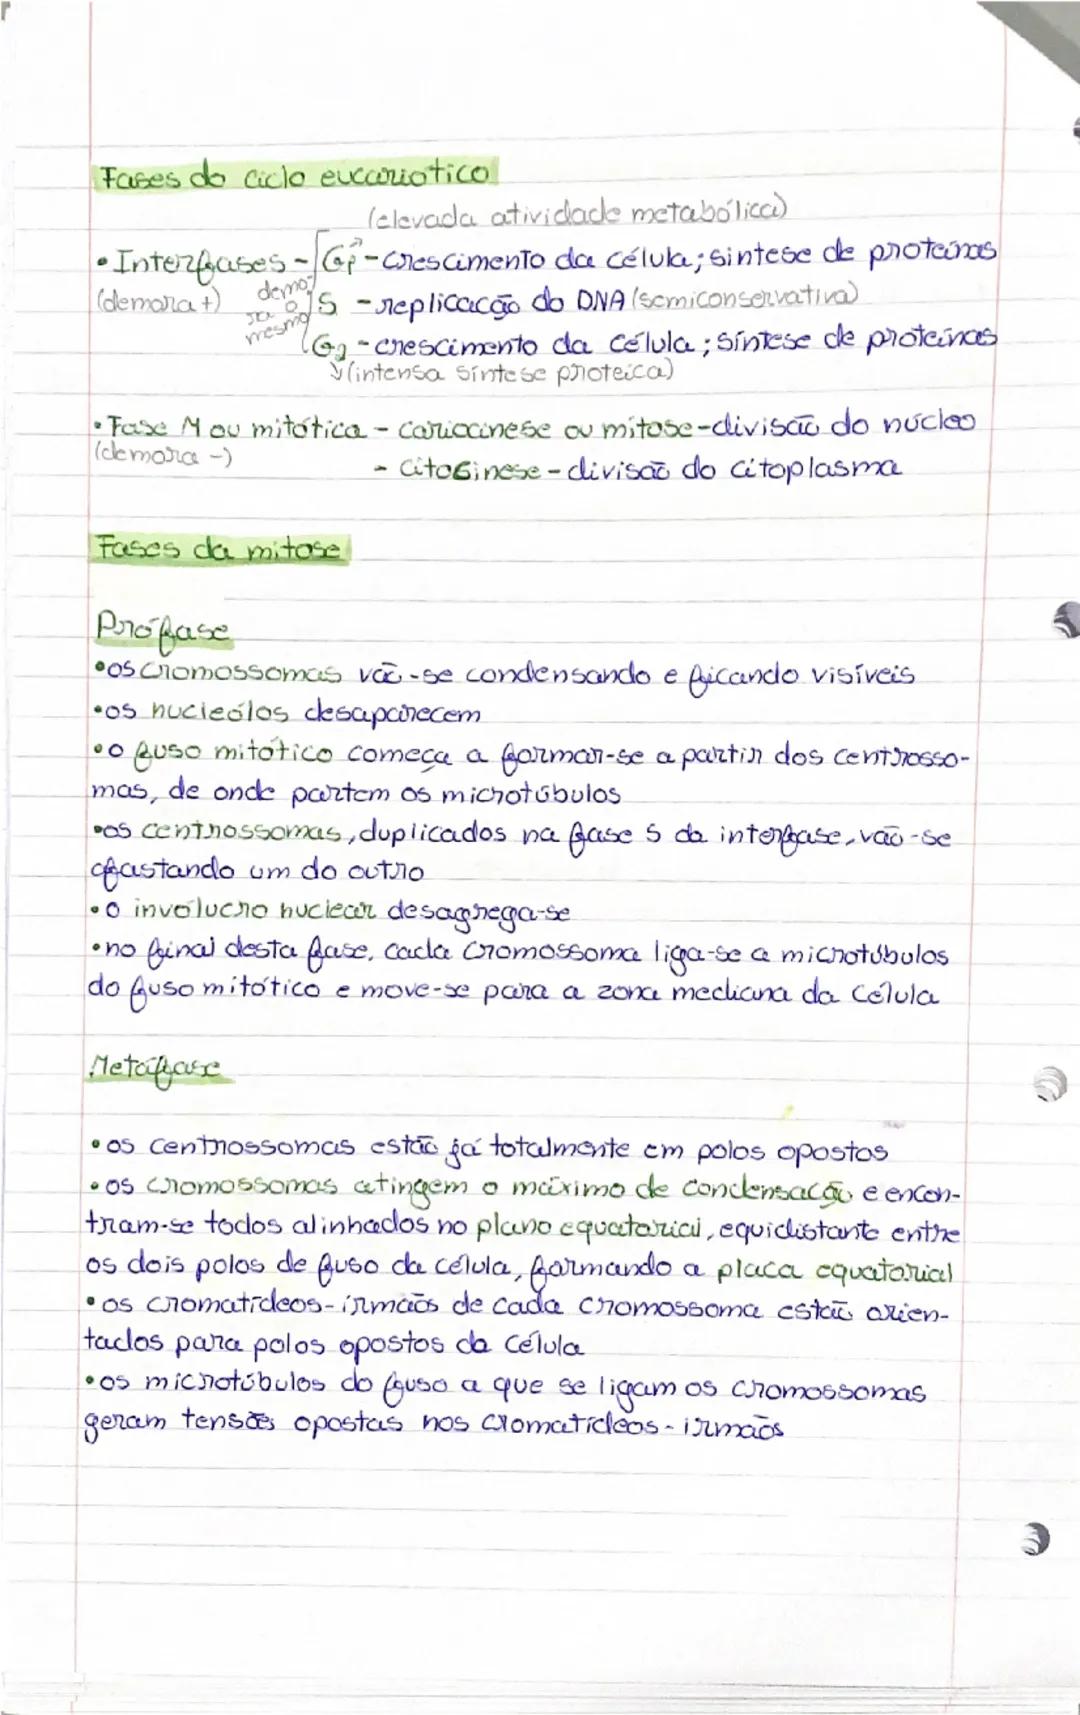 Fases do ciclo eucariotico
(elevada atividade metabólica)
• Interfases - G1 - crescimento da célula; sintese de proteínas
(demora +) demora o mesmo S - replicação do DNA (semiconservativa)
G2 - crescimento da célula; síntese de proteínas
(intensa síntese proteica)
• Fase M ou mitótica - cariocinese ou mitose - divisão do núcleo
(demora -)
- citocinese - divisão do citoplasma
Fases da mitose
Prófase
• os cromossomas vão-se condensando e ficando visíveis
• os nucléolos desaparecem
• o fuso mitótico começa a formar-se a partir dos centrosso-
mas, de onde partem os microtúbulos
• os centrossomas, duplicados na fase S da interfase, vão-se
afastando um do outro
• o invólucro nuclear desagrega-se
• no final desta fase, cada cromossoma liga-se a microtúbulos
do fuso mitótico e move-se para a zona mediana da célula
Metáfase
• os centrossomas estão já totalmente em polos opostos
• os cromossomas atingem o máximo de condensação e encon-
tram-se todos alinhados no plano equatorial, equidistante entre
os dois polos de fuso da célula, formando a placa equatorial
• os cromatídeos-irmãos de cada cromossoma estão orien-
tados para polos opostos da célula
• os microtúbulos do fuso a que se ligam os cromossomas
geram tensões opostas nos cromatídeos-irmãos